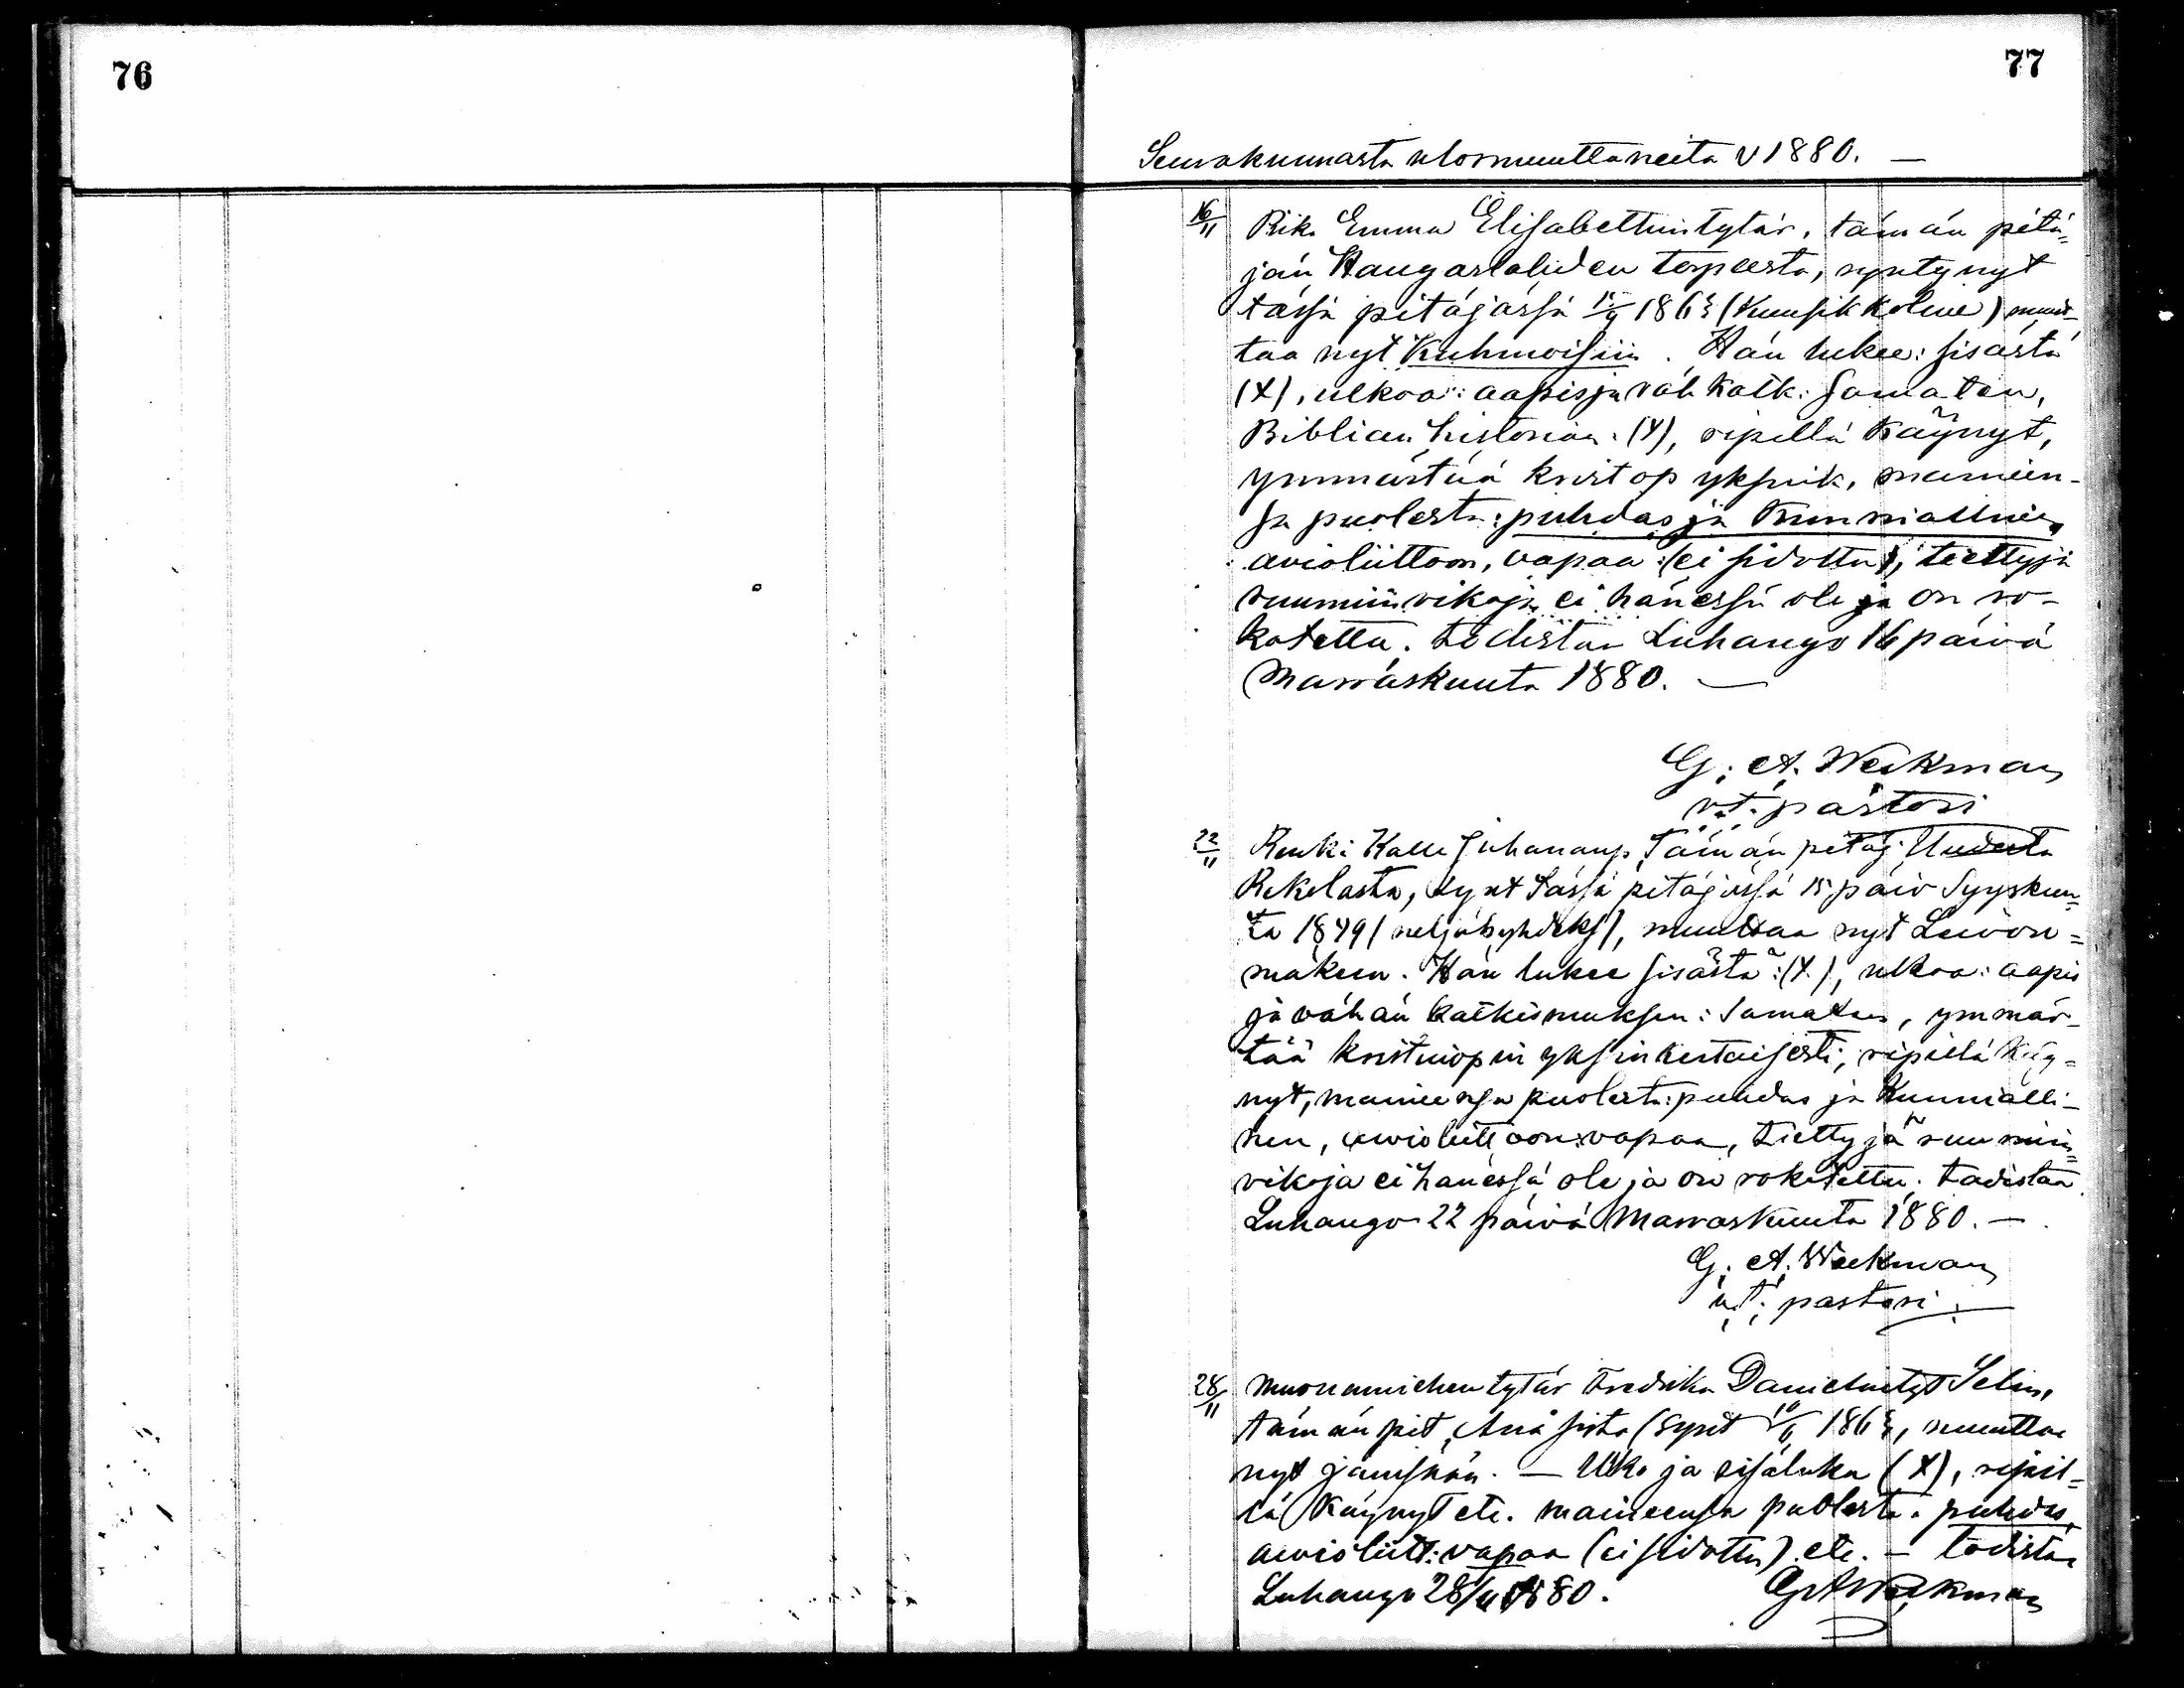 76
77
Seurakunnasta ulosmuuttaneita v 1880. —
16/11 Piika Emma Elisabettintytär, tämän pitä=
jän Kangaslahden torpasta, syntynyt
tässä pitäjässä 1863 (kuusikkolme) muut-
taa nyt Kuhmoisiin. Hän lukee: sisästä
(X), ulkoa: aapis ja väh katk: samaten,
Biblian historian: (X), ripillä käynyt,
ymmärtää krist op yksink, maineen-
sa puolesta: puhdas ja kunniallinen,
avioliittoon, vapaa (ei sidottu), tiettyjä
ruumiinvikoja ei hänessä ole ja on ro-
kotettu. todistaa Luhango 16 päivä
Marraskuuta 1880. —
G. A. Weckman
v.t. pastori
22/11 Renki Kalle Juhananp. Tämän pitäj. Uudesta
Rekolasta, synt tässä pitäjässä 15 päiv Syyskuu=
ta 1849 (neljäkyhdeks), muuttaa nyt Leivon=
mäkeen. Hän lukee sisästä: (X), ulkoa: aapis
ja vähän katkismuksen: samaten, ymmär-
tää kristinopin yksinkertaisesti, ripillä käy=
nyt, maineensa puolesta: puhdas ja kunnialli-
nen, avioliittoon: vapaa, tiettyjä ruumiin=
vikoja ei hänessä ole ja on rokotettu. todistaa
Luhango 22 päivä Marraskuuta 1880. —
G. A. Weckman
v.t. pastori
28/11 Muonamiehen tytär Fredrika Danielintyt Selin,
tämän pit. (synt 1863, muuttaa
nyt Jämsään. — Ulko ja sisäluku (X), ripil=
lä käynyt etc. maineensa puolesta: puhdas,
avioliitt: vapaa (ei sidottu) etc. — todistaa
Luhango 28/11 1880. G A Weckman